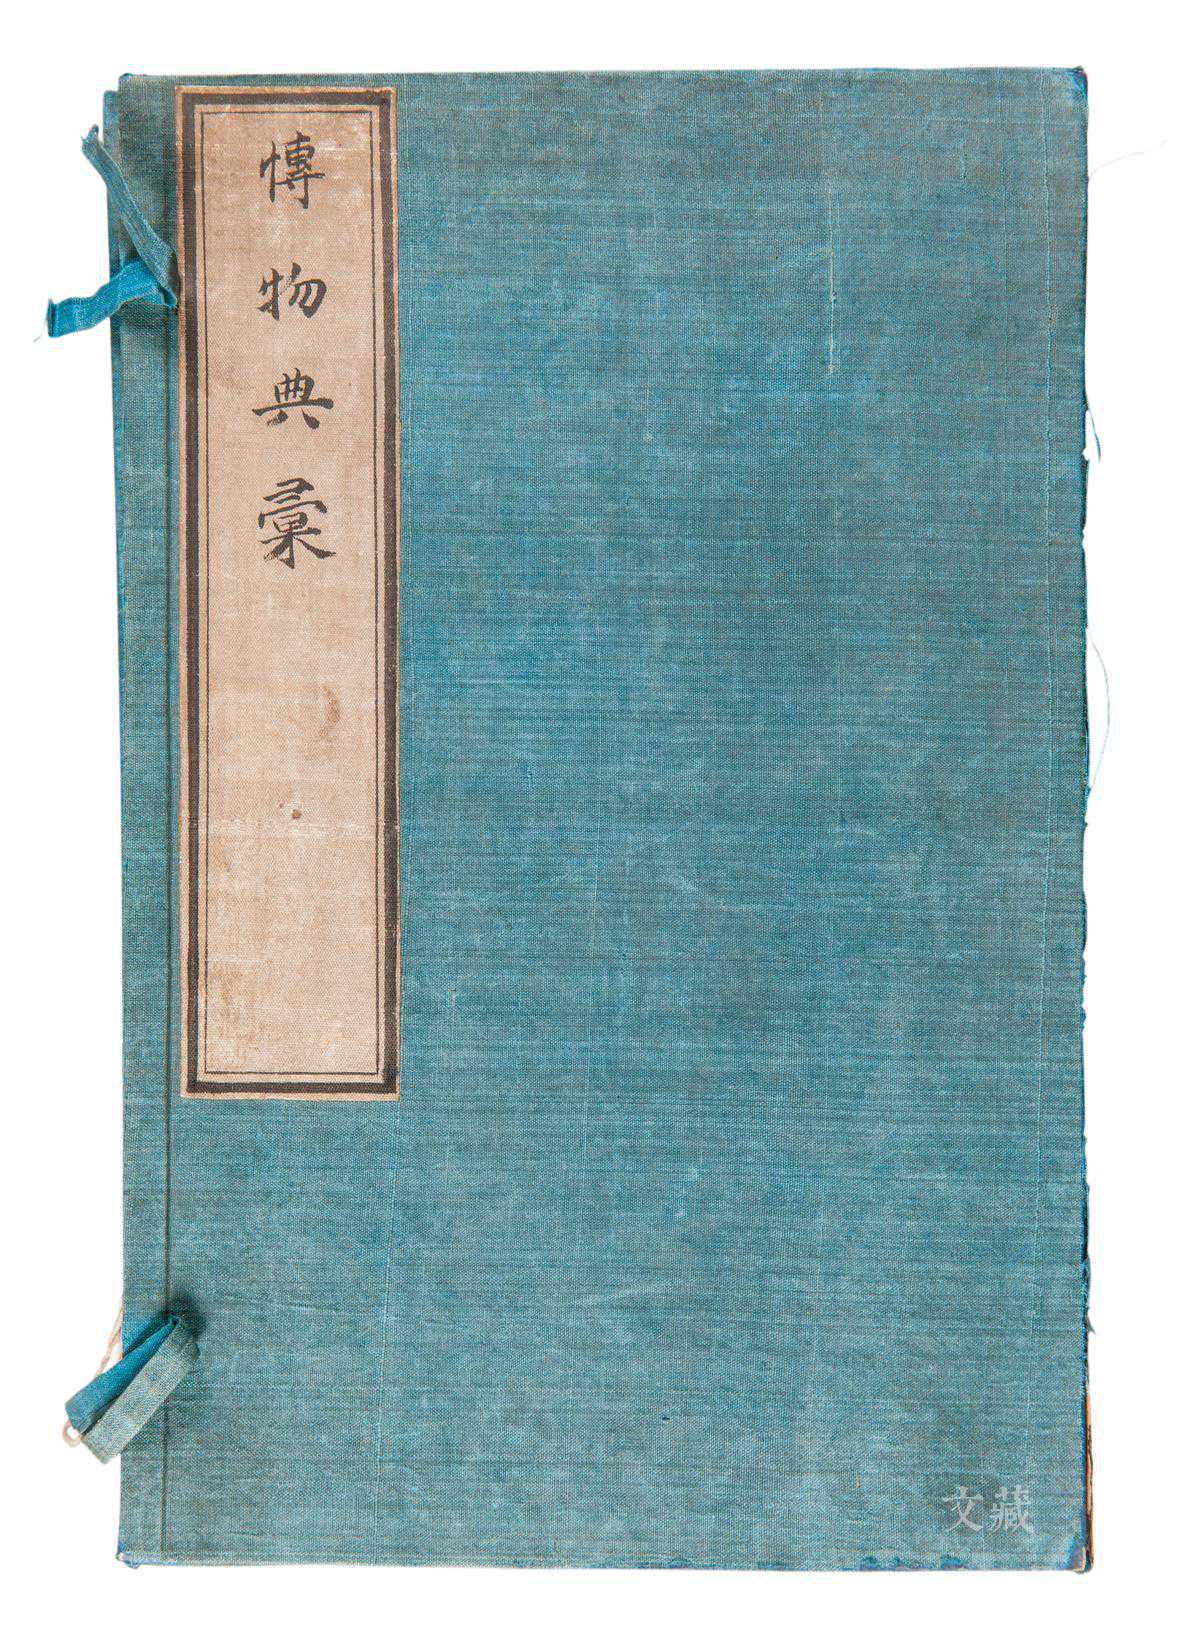 愽物典彙
文藏